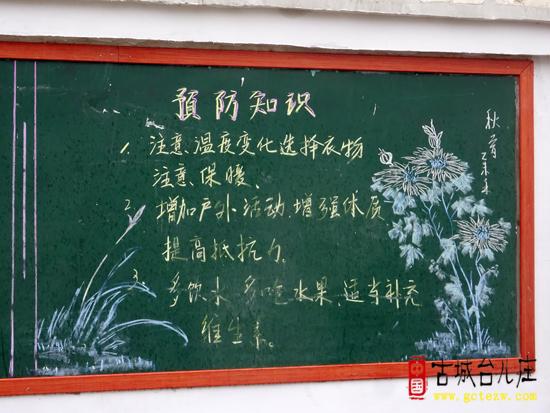 預防知识
1. 注意温度变化选择衣物
注意保暖、
2. 增加户外活动、增强体质
提高抵抗力。
3. 多饮水、多吃水果、适当补充
维生素。
秋菁
乙未冬
中国
古城台儿庄
www.gctezw.com